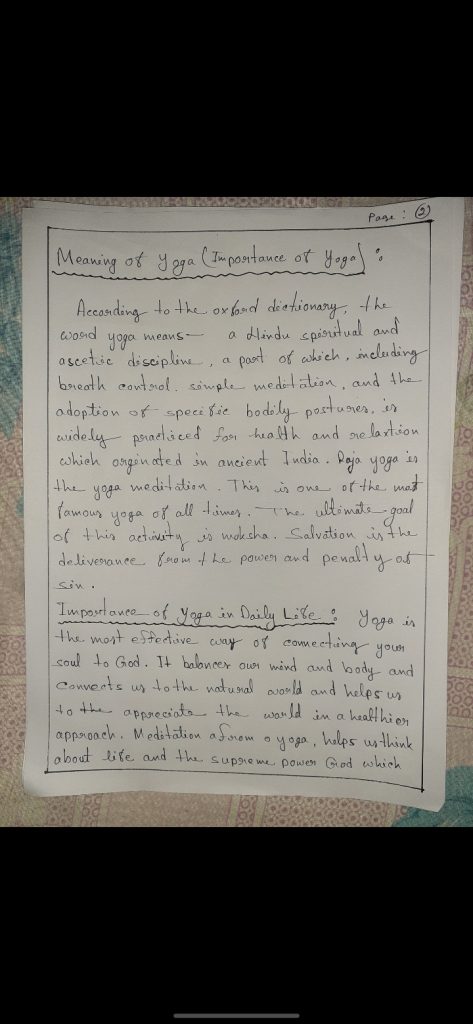 Page : 2
Meaning of Yoga (Importance of Yoga) :
According to the oxford dictionary, the
word yoga means— a Hindu spiritual and
ascetic discipline, a part of which, including
breath control. simple meditation, and the
adoption of specific bodily postures, is
widely practiced for health and relaxtion
which orginated in ancient India. Raja yoga is
the yoga meditation. This is one of the most
famous yoga of all times. The ultimate goal
of this activity is moksha. Salvation is the
deliverance from the power and penalty of
sin.
Importance of Yoga in Daily Life : Yoga is
the most effective way of connecting your
soul to God. It balances our mind and body and
connects us to the natural world and helps us
to the appreciate the world in a healthier
approach. Meditation yoga, helps us think
about life and the supreme power God which